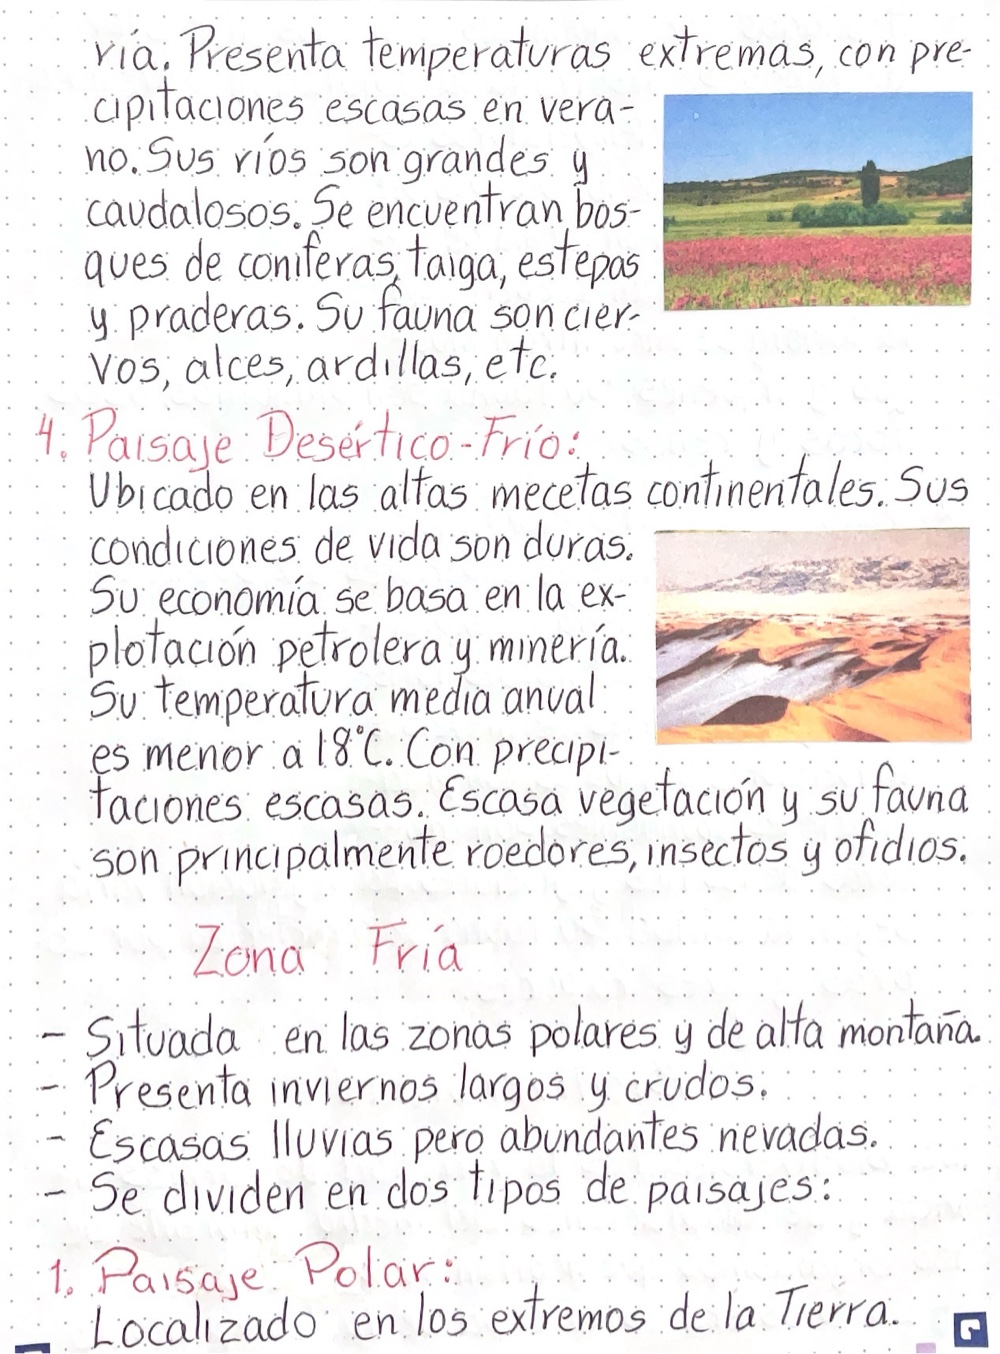 ría. Presenta temperaturas extremas, con pre-
cipitaciones escasas en vera-
no. Sus ríos son grandes y
caudalosos. Se encuentran bos-
ques de coniferas, taiga, estepas
y praderas. Su fauna son cier-
vos, alces, ardillas, etc.
4. Paisaje Desértico-Frío:
Ubicado en las altas mecetas continentales. Sus
condiciones de vida son duras.
Su economía se basa en la ex-
plotación petrolera y minería.
Su temperatura media anual
es menor a 18°C. Con precipi-
taciones escasas. Escasa vegetación y su fauna
son principalmente roedores, insectos y ofidios.
Zona Fría
- Situada en las zonas polares y de alta montaña.
- Presenta inviernos largos y crudos.
- Escasas lluvias pero abundantes nevadas.
- Se dividen en dos tipos de paisajes:
1. Paisaje Polar:
Localizado en los extremos de la Tierra.